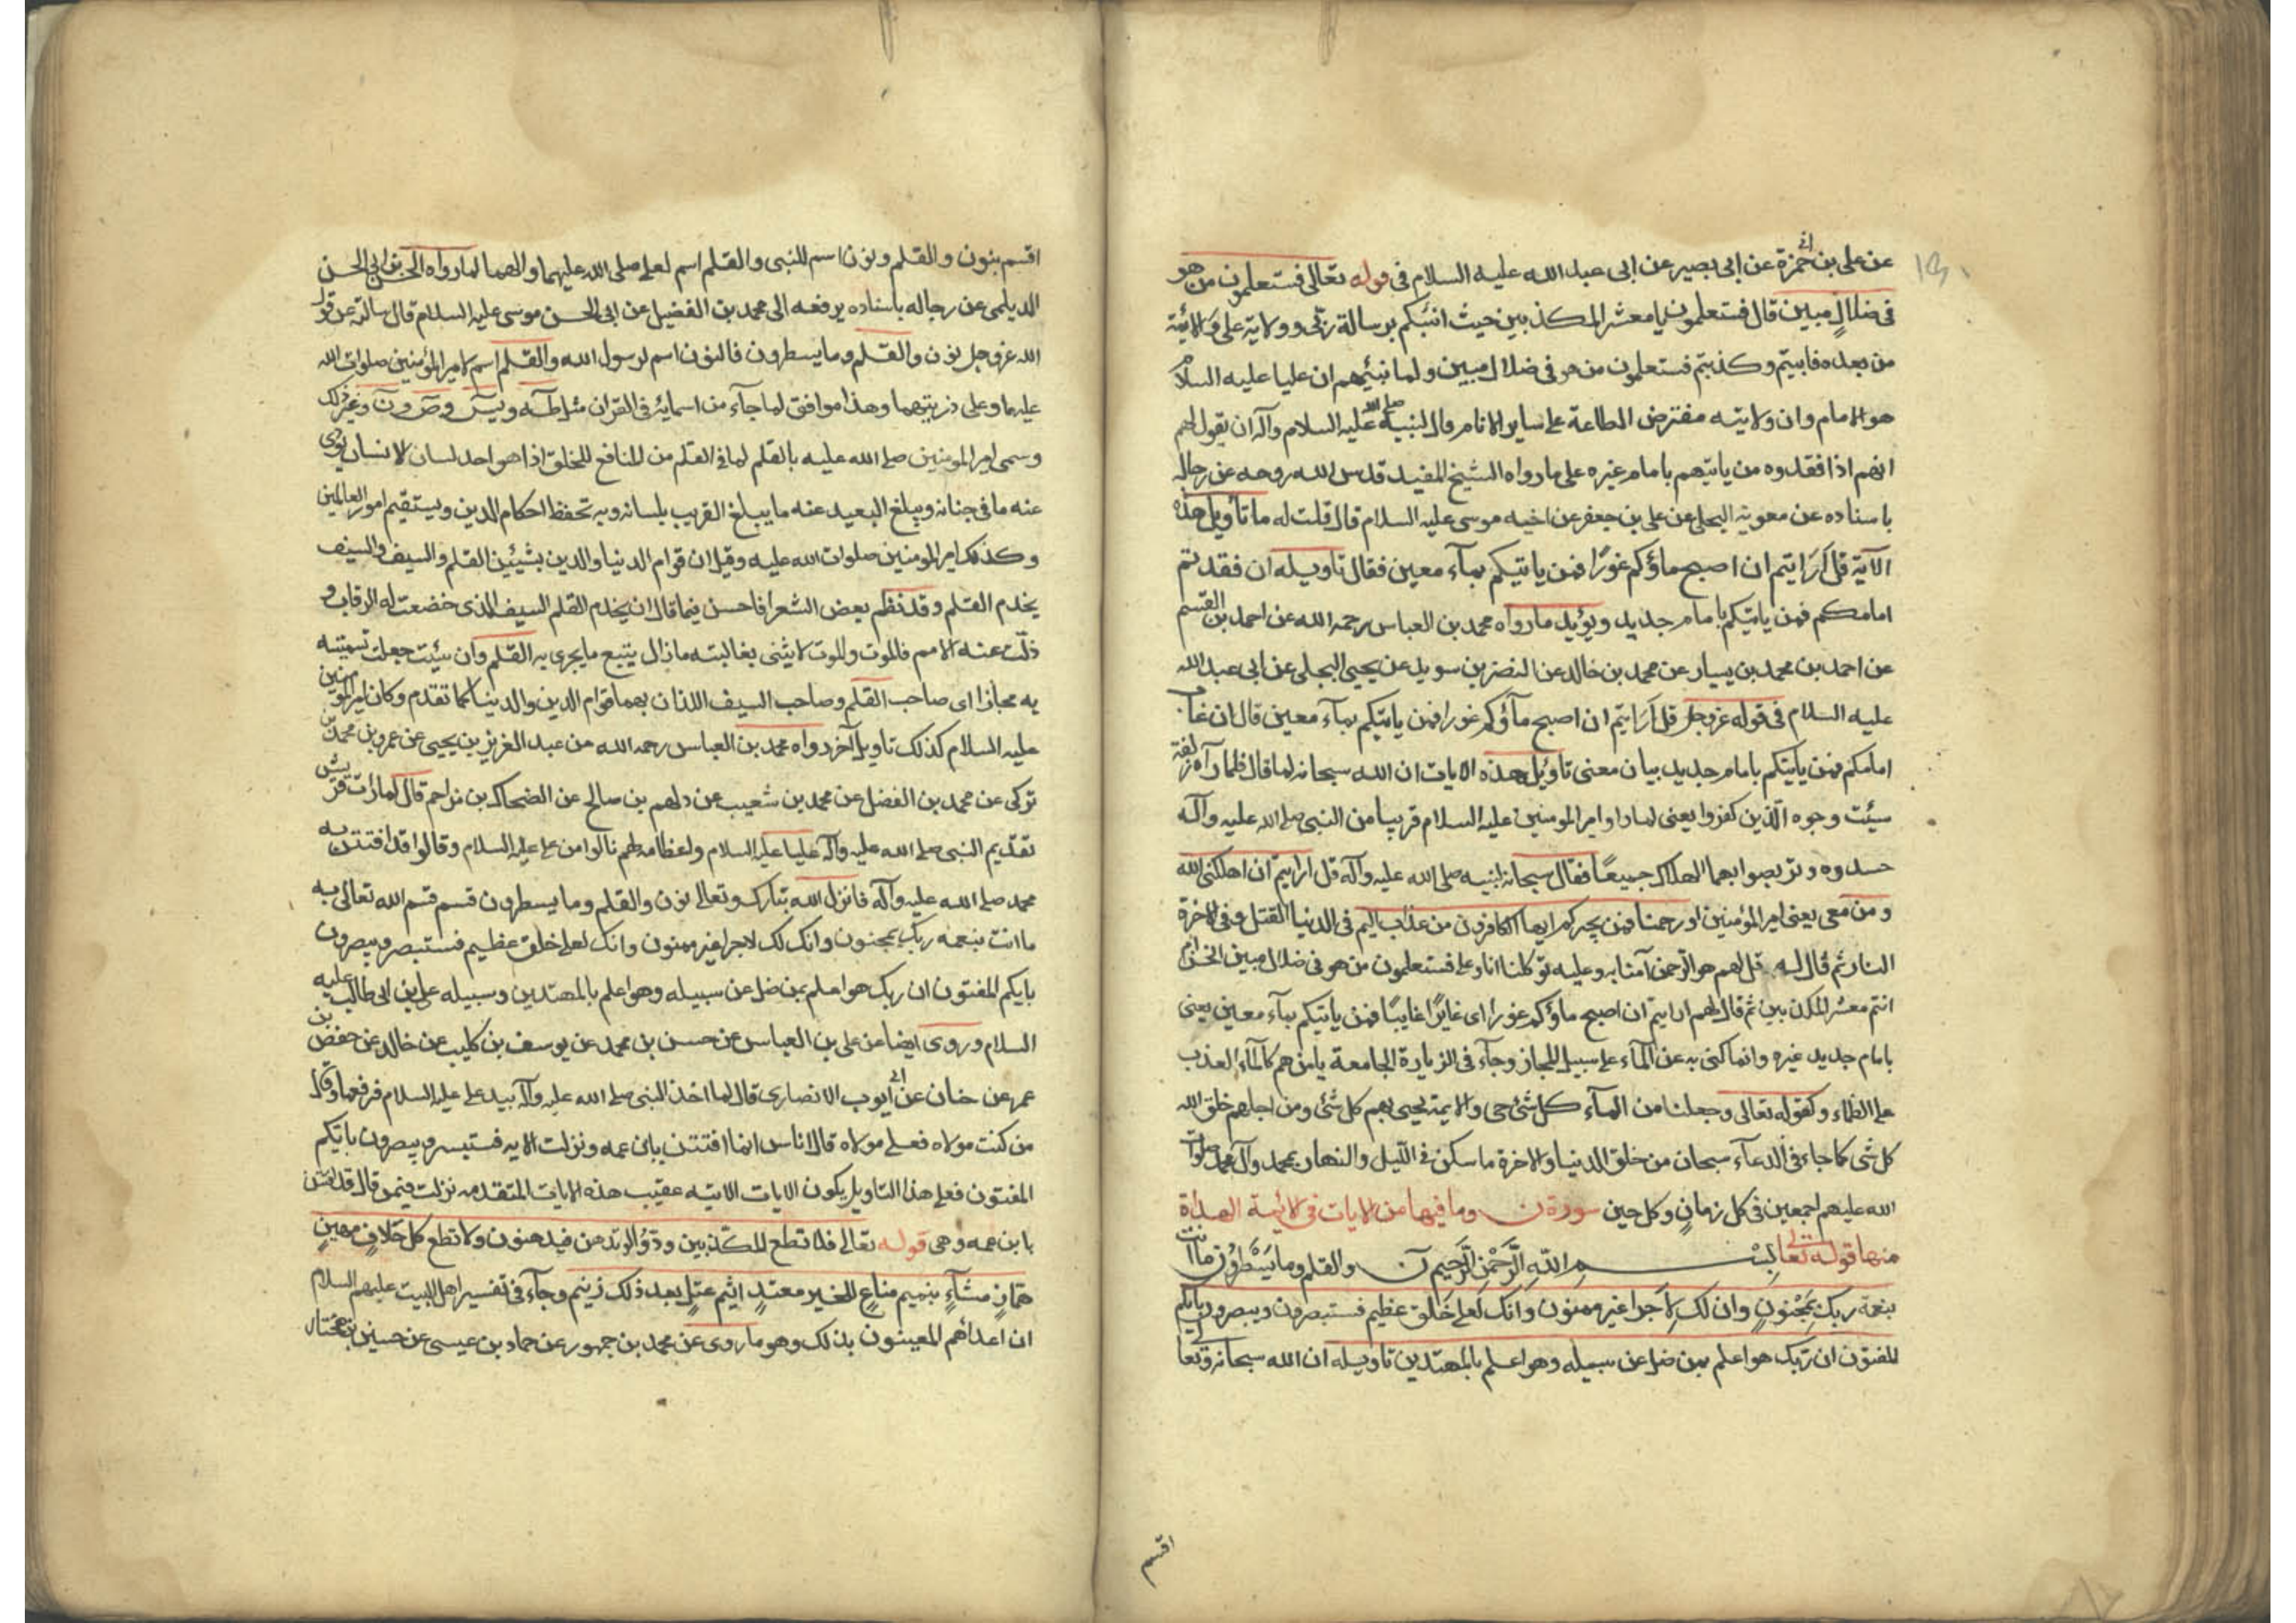 عن على بن ابى حمزة عن ابى بصير عن ابى عبد الله عليه السلام فى قوله تعالى فستعلمون من هو
فى ضلالٍ مبين قال فستعلمون يا معشر المكذبين حيث انبئكم برسالة ربى وولاية على والائمة
من بعده فابيتم وكذبتم فستعلمون من هو فى ضلال مبين ولما نبئهم ان عليا عليه السلام
هو الامام وان ولايته مفترض الطاعة على ساير الانام قال لنبيه صلى الله عليه السلام وآله ان يقول لهم
انهم اذا فقدوه من ياتيهم بامام غيره على ما رواه الشيخ المفيد قدس الله روحه عن رجاله
باسناده عن معوية البجلى عن على بن جعفر عن اخيه موسى عليه السلام قال قلت له ما تأويل هذه
الآية قل أرَايتم ان اصبح ماؤكم غورًا فمن ياتيكم بمآء معين فقال تاويله ان فقدتم
امامكم فمن ياتيكم بامام جديد ويؤيد ما رواه محمد بن العباس رحمه الله عن احمد بن القسم
عن احمد بن محمد بن يسار عن محمد بن خالد عن النضر بن سويد عن يحيى البجلى عن ابى عبد الله
عليه السلام فى قوله عز وجل قل اَرَايتم ان اصبح مآؤكم غورا فمن ياتيكم بمآء معين قال ان غاب
امامكم فمن ياتيكم بامام جديد بيان معنى تاويل هذه الايات ان الله سبحانه لما قال فلما رآه زلفة
سيئت وجوه الّذين كفروا يعنى لما راوا امير المومنين عليه السلام قريبا من النبى صلى الله عليه وآله
حسدوه وتربصوا بهما الهلاك جميعًا فقال سبحانه لنبيه صلى الله عليه وآله قل ارايتم ان اهلكنى الله
ومن معى يعنى امير المؤمنين اورحمنا فمن يجيركم ايها الكافرون من عذاب اليم فى الدنيا القتل وفى الاخرة
النار ثم قال له قل لهم هو الرحمن آمنا به وعليه توكلنا انا وعلى فستعلمون من هو فى ضلال مبين انحن ام
انتم معشر المكذبين ثم قال لهم ارايتم ان اصبح ماؤكم غورًا اى غايرًا غايبًا فمن ياتيكم بمآء معين يعنى
بامام جديد غيره وانما كنى به عن المآء على سبيل المجاز وجآء فى الزيارة الجامعة يا من هم كالمآء العذب
على الظماء وكقوله تعالى وجعلنا من المآء كل شئ حى والايمة يحيى بهم كل شئ ومن اجلهم خلق الله
كل شى كما جاء فى الدعآء سبحان من خلق الدنيا والاخرة ما سكن فى الليل والنهار بمحمد وآل محمد صلوات
الله عليهم اجمعين فى كل زمانٍ وكل حين سورة ن وما فيها من الايات فى الائمة الهداة
منها قوله تعالى بسْم اللهِ الرَّحْمٰنِ الرَّحيم نٓ والقلم وما يَسْطُرُون ما انت
بنعمة ربك بمَجْنونٍ وان لك لأجرا غير ممنون وانك لعلى خلق عظيم فستبصرون ويبصرون بايكم
المفتون ان ربك هو اعلم بمن ضل عن سبيله وهو اعلم بالمهتدين تاويله ان الله سبحانه وتعالى
اقسم
اقسم بنون والقلم ونون اسم للنبى والقلم اسم لعلى صلى الله عليهما والهما لما رواه الحسن بن ابى الحسن
الديلمى عن رجاله باسناده يرفعه الى محمد بن الفضيل عن ابى الحسن موسى عليه السلام قال سالته عن قول
الله عز وجل نون والقلم وما يسطرون فالنون اسم لرسول الله والقلم اسم لامير المؤمنين صلوات الله
عليهما وعلى ذريتهما وهذا موافق لما جآء من اسمايه فى القران مثل طه ويس وص ون وغير ذلك
وسمى امير المومنين صلى الله عليه بالقلم لما فى القلم من المنافع للخلق اذا هو احد لسان الانسان يودى
عنه ما فى جنانه ويبلغ البعيد عنه ما يبلغ القريب بلسانه وبه تحفظ احكام الدين ويستقيم امور العالمين
وكذلك امير المومنين صلوات الله عليه وقيل ان قوام الدنيا والدين بشيئين القلم والسيف والسيف
يخدم القلم وقد نظم بعض الشعرا فاحسن فيما قال ان يخدم القلم السيف الذى خضعت له الرقاب و
ذلّت عنه الامم فالموت والموت لا يثنى يغالبته مازال يتبع ما يجرى به القلم وان سيئت جعلت تسميته
به مجازا اى صاحب القلم وصاحب السيف اللذان بهما قوام الدين والدنيا كما تقدم وكان امير المومنين
عليه السلام كذلك تاويل آخر رواه محمد بن العباس رحمه الله من عبد العزيز بن يحيى عن عمرو بن محمد بن
تركى عن محمد بن الفضل عن محمد بن شعيب عن دلهم بن صالح عن الضحاك بن مزاحم قال لما رات قريش
تقديم النبى صلى الله عليه وآله عليا عليه السلام واعظامه لهم نالوا من على عليه السلام وقالوا قد افتتن به
محمد صلى الله عليه وآله فانزل الله تبارك وتعالى نون والقلم وما يسطرون قسم قسم الله تعالى به
ما انت بنعمه ربك بمجنون وانك لك لاجرا غير ممنون وانك لعلى خلق عظيم فستبصر ويبصرون
بايكم المفتون ان ربك هو اعلم بمن ضل عن سبيله وهو اعلم بالمهتدين وسبيله على بن ابى طالب عليه
السلام وروى ايضا من على بن العباس عن حسن بن محمد عن يوسف بن كليب عن خالد عن حفص بن
عمر عن حنان عن ابى أيوب الانصارى قال لما اخذ النبى صلى الله عليه وآله بيد على عليه السلام فرفعها وقال
من كنت مولاه فعلى مولاه قال اناس انما افتتن بابن عمه ونزلت الايه فستبصر ويبصرون بايّكم
المفتون فعلى هذا التاويل يكون الايات الاتيه عقيب هذه الايات المتقدمه نزلت فيمن قال قد افتتن
بابن عمه وهى قوله تعالى فلا تطع المكذبين ودّوا لو تدهن فيدهنون ولا تطع كل حَلافٍ مهينٍ
همّازٍ مشآءٍ بنميم مناعٍ للخير معتدٍ اثيم عتلٍ بعد ذلك زنيم وجآء فى تفسير اهل البيت عليهم السلام
ان اعدآئهم المعينون بذلك وهو ما روى عن محمد بن جمهور عن حماد بن عيسى عن حسين بن مختار